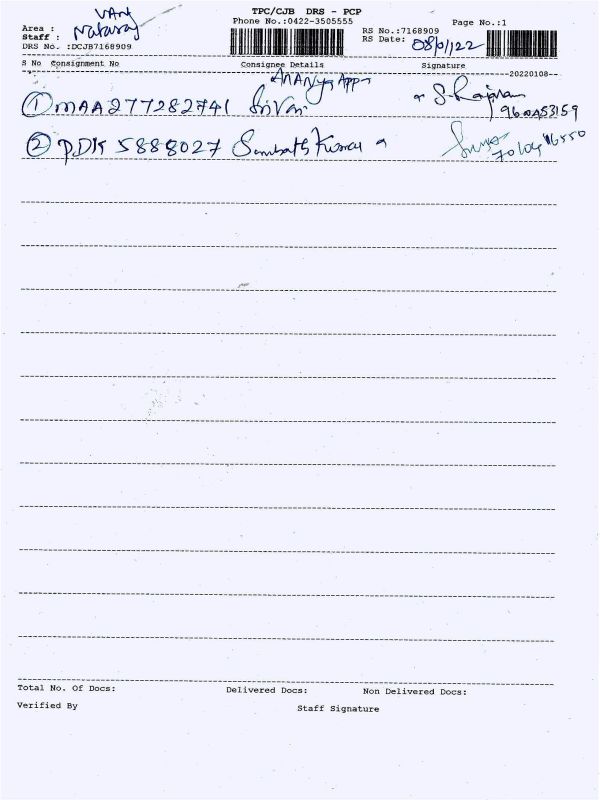 TPC/CJB DRS - PCP
Phone No.:0422-3505555
Page No.:1
Area : VAN
Staff : Nataraj
DRS No. :DCJB7168909
RS No.:7168909
RS Date: 08/01/22
S No Consignment No Consignee Details Signature
--20220108--
ANANya App
① MAA277282741 Sri Vari S Rajan
② PDK 5888027 Sambath Kumar
Total No. Of Docs: Delivered Docs: Non Delivered Docs:
Verified By Staff Signature